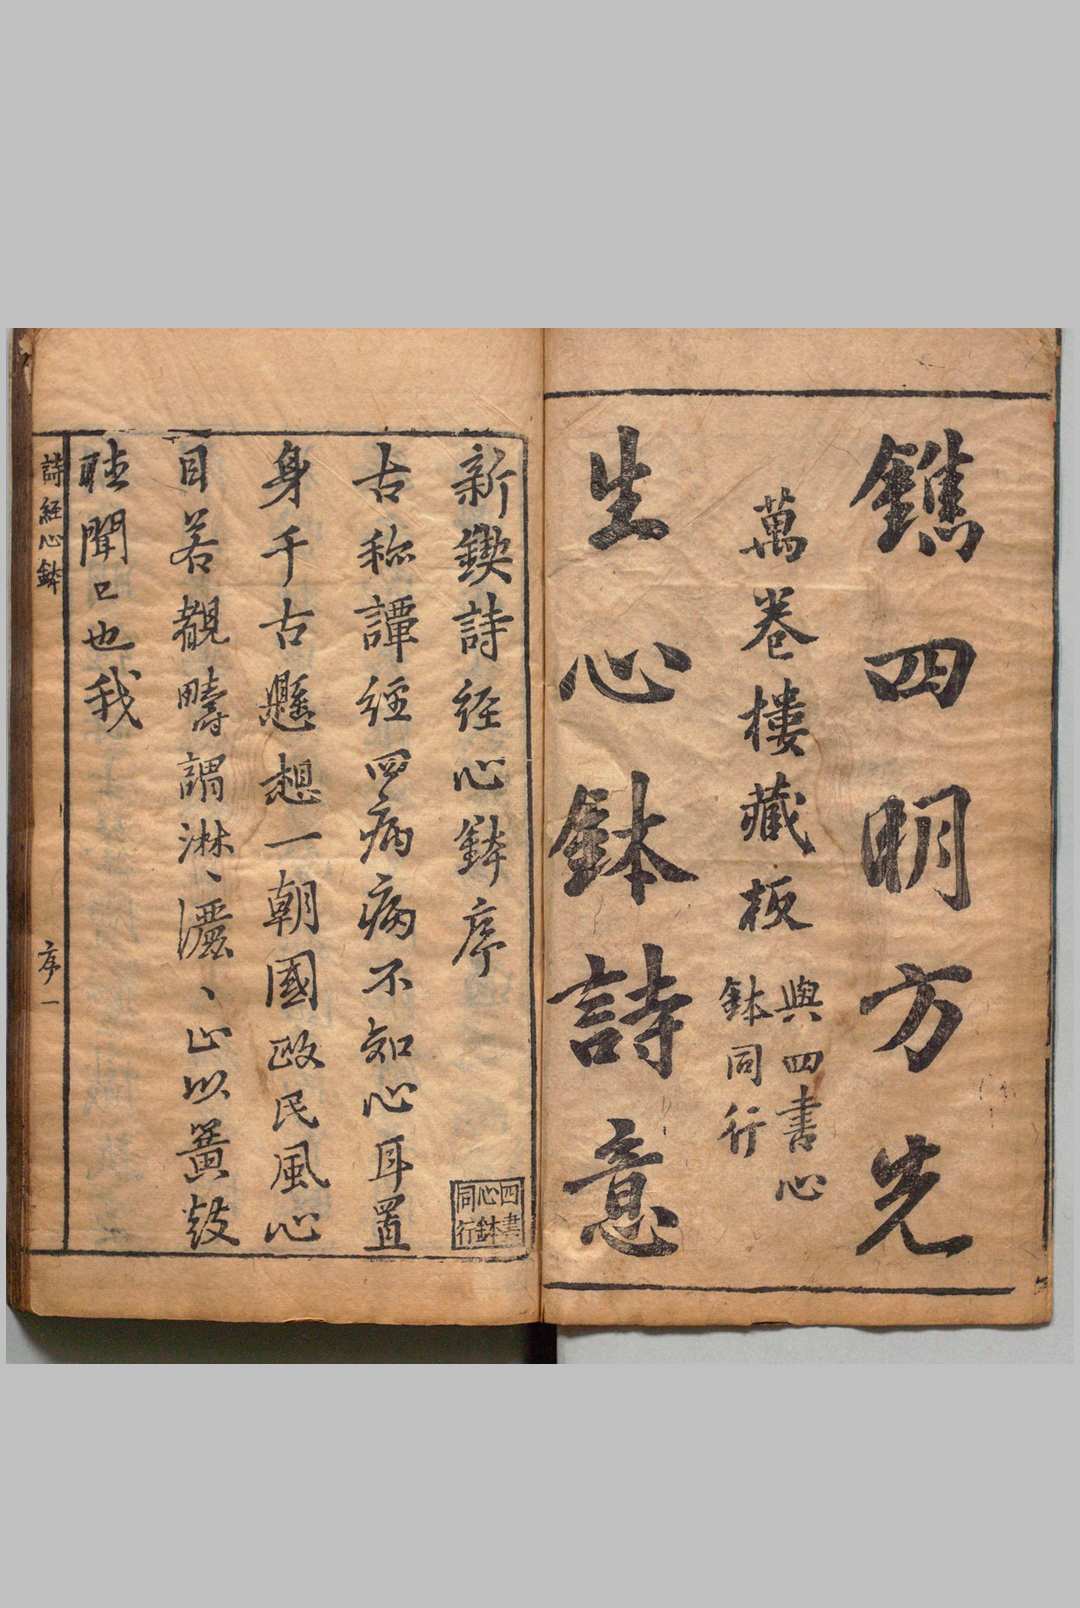 鐫四明方先
萬卷樓藏板
與四書心
鉢同行
生心鉢詩意
新鍥詩経心鉢序
四書
心鉢
同行
古称譚経四病病不知心耳置
身千古懸想一朝國政民風心
目若覩疇謂淋丶灑丶止以簧鼓
聴聞已也我
詩経心鉢
序一